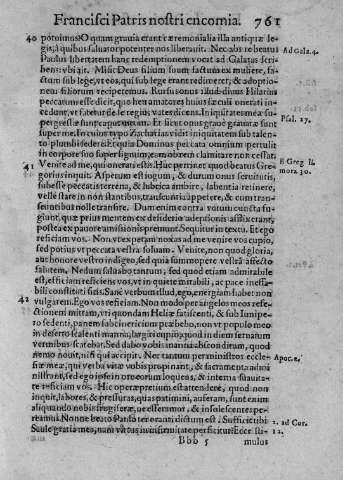 Francisci Patris nostri encomia. 761
40 potuimus? O quam gravia erant cæremonialia illa antiquæ le-
gis, à quibus saluator potenter nos liberauit. Nec abs re beatus
Paulus libertatem hanc redemptionem vocat ad Galatas scri- Ad Gala.4.
bens: vbi ait. Misit Deus filium suum factum ex muliere, fa-
ctum sub lege, vt eos, qui sub lege erant redimeret, & adoptio-
nem filiorum reciperemus. Rursus onus illud diuus Hilarius
peccatum esse dicit, quo hen amatores huius sæculi onerati in-
cedunt, vt fatetur de se regius vates dicens. Iniquitates meæ su-
pergressæ sunt caput meum. Et sicut onus graue grauatæ sunt Psal. 37.
super me. In cuius typo Zacharias vidit iniquitatem sub talen-
to plumbi sedere. Et quia Dominus peccata omnium pertulit
in corpore suo super lignum, eam ob rem clamitare non cessat.
41 Venite ad me, qui onerati estis. Huc pertinet quod beatus Gre-
gorius inquit. Asperum est iugum, & durum onus seruitutis,
subesse peccatis terrena, & lubrica ambire, labentia retinere,
velle stare in non stantibus, transeuntia appetere, & cum tran-
seuntibus nolle transire. Dum enim contra votum cuncta fu-
giunt, quæ prius mentem ex desiderio adeptionis afflixerant,
postea ex pauore amissionis premunt. Sequitur in textu. Et ego
reficiam vos. Non, vt expetam noxas ad me venire vos cupio,
sed potius vt peccata vestra soluam. Venite, non quod gloria,
aut honore vestro indigeo, sed quia summopere vestra affecto
salutem. Nedum saluabo tantum, sed quod etiam admirabile
est, efficiam reficiens vos, vt in quiete mirabili, ac pace ineffa-
bili constituti sitis. Sanè verbum illud, ego, energiam habet non
42 vulgarem. Ego vos reficiam. Non modo per angelos meos refe-
ctionem mittam, vti quondam Heliæ fatiscenti, & sub Iunipe-
ro sedenti, panem subcinericium præbebo, non vt populo meo
in deserto scalenti manna, largiri quod in diem sernatum
vermibus scatebat. Sed dabo vobis manna absconditum, quod
nemo nouit, nisi qui accipit. Nec tantum per ministros eccle- Apoc. 2.
siæ meæ, qui verba vitæ vobis propinant, & sacramenta admi-
nistrant, sed ego ipse in procerum loquens, & interna suauita-
te reficiam vos. Hic operæpretium est attendere, quod non
inquit, labores, & pressuras, quas patimini, auferam, sunt enim
aliquando nobis frugiferæ, ne efferamur, & insolescentes pe-
reamus. Nonne beato Paulo ter oranti, dictum est. Sufficit ti-
bi Paule gratia mea, nam virtus in infirmitate perficitur? Ederi 2. ad Cor. 12.
Bbb 5 mulus